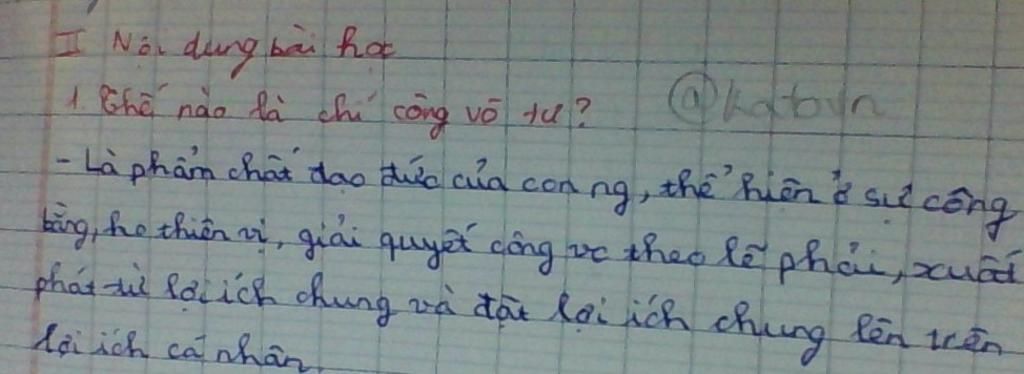 I Nội dung bài học
1. Thế nào là chí công vô tư?
- Là phẩm chất đạo đức của con ng, thể hiện ở sự công
bằng, ko thiên vị, giải quyết công vc theo lẽ phải, xuất
phát từ lợi ích chung và đặt lợi ích chung lên trên
lợi ích cá nhân